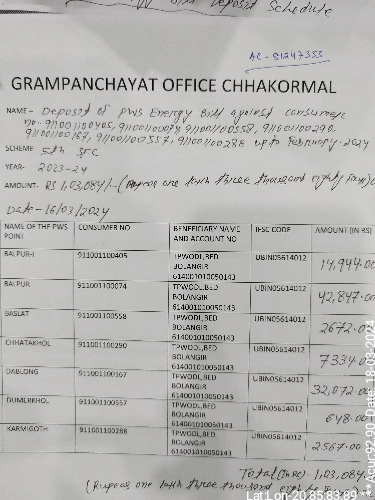 Deposit Schedule
AC - 81247353
GRAMPANCHAYAT OFFICE CHHAKORMAL
NAME - Deposit of PWS Energy Bill against consumer
no- 911001100405, 911001100074, 911001100558, 911001100290,
911001100167, 911001100557, 911001100288 up to February - 2024
SCHEME 5th SFC
YEAR- 2023-24
AMOUNT- Rs 1,03,084/- (Rupees one lakh three thousand eighty four)
Date - 16/03/2024
NAME OF THE PWS POINT CONSUMER NO BENEFICIARY NAME AND ACCOUNT NO IFSC CODE AMOUNT (IN RS)
BALPUR-I 911001100405 TPWODL,BED BOLANGIR 614001010050143 UBIN05614012 14,944.00
BALPUR 911001100074 TPWODL,BED BOLANGIR 614001010050143 UBIN05614012 42,847.00
BASLAT 911001100558 TPWODL,BED BOLANGIR 614001010050143 UBIN05614012 2672.00
CHHATAKHOL 911001100290 TPWODL,BED BOLANGIR 614001010050143 UBIN05614012 7334.00
DABLONG 911001100167 TPWODL,BED BOLANGIR 614001010050143 UBIN05614012 32,072.00
DUMERKHOL 911001100557 TPWODL,BED BOLANGIR 614001010050143 UBIN05614012 648.00
KARMIGOTH 911001100288 TPWODL,BED BOLANGIR 614001010050143 UBIN05614012 2567.00
Total (In Rs) 1,03,084
(Rupees one lakh three thousand eighty four
Lat Lon- 20.85 83.89 ** Acc-92.90 Date-18.03.202